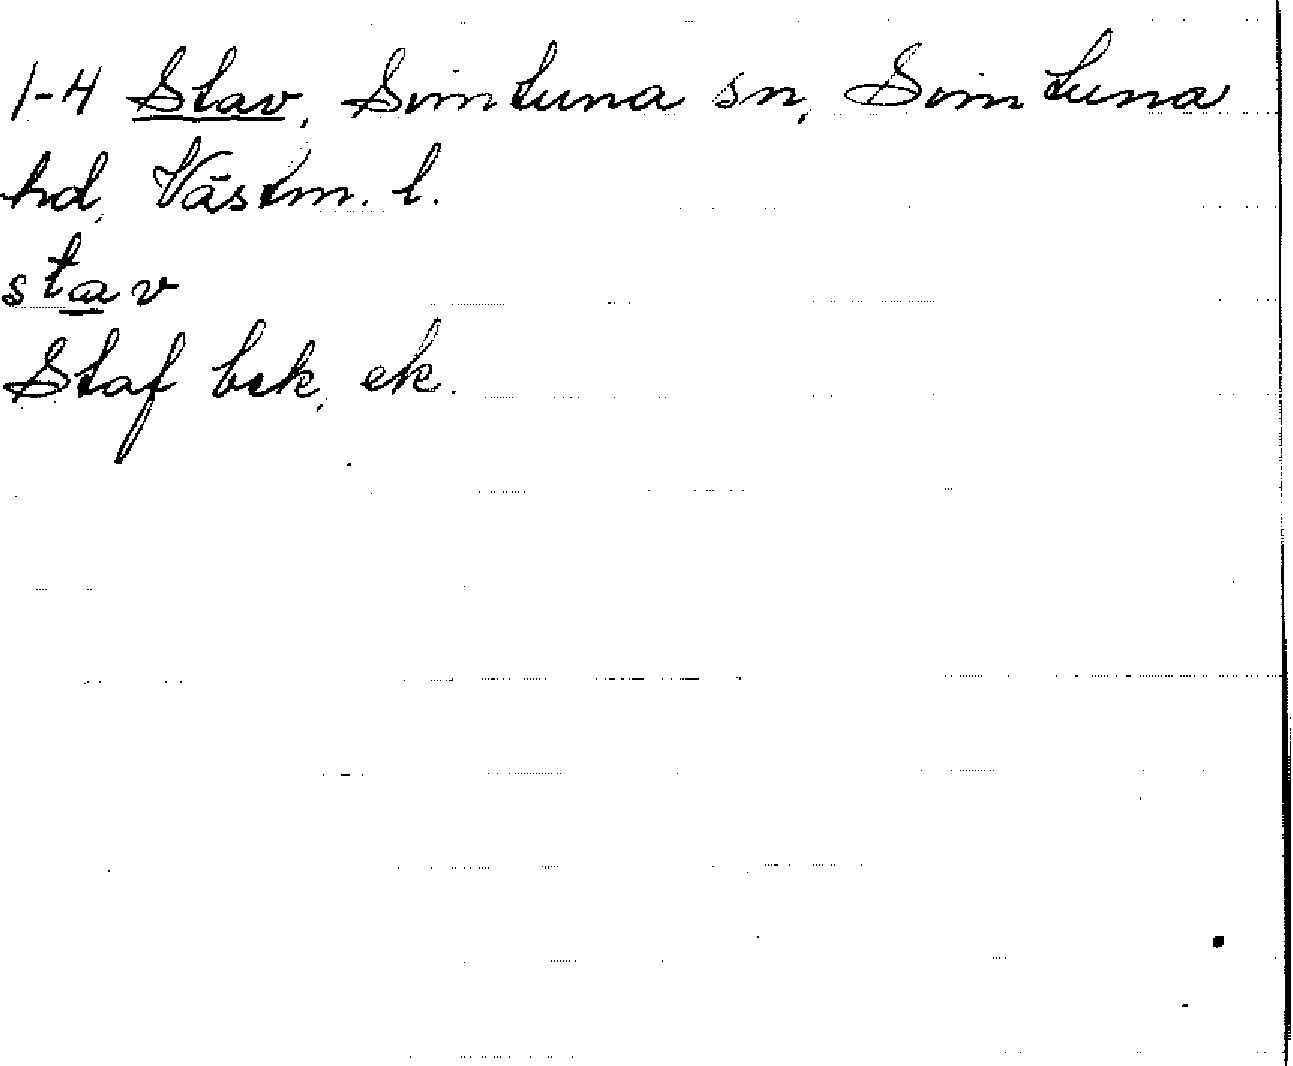 1-4 Stav, Simtuna sn, Simtuna
hd, Västm. l.
stav
Staf bek, ek.